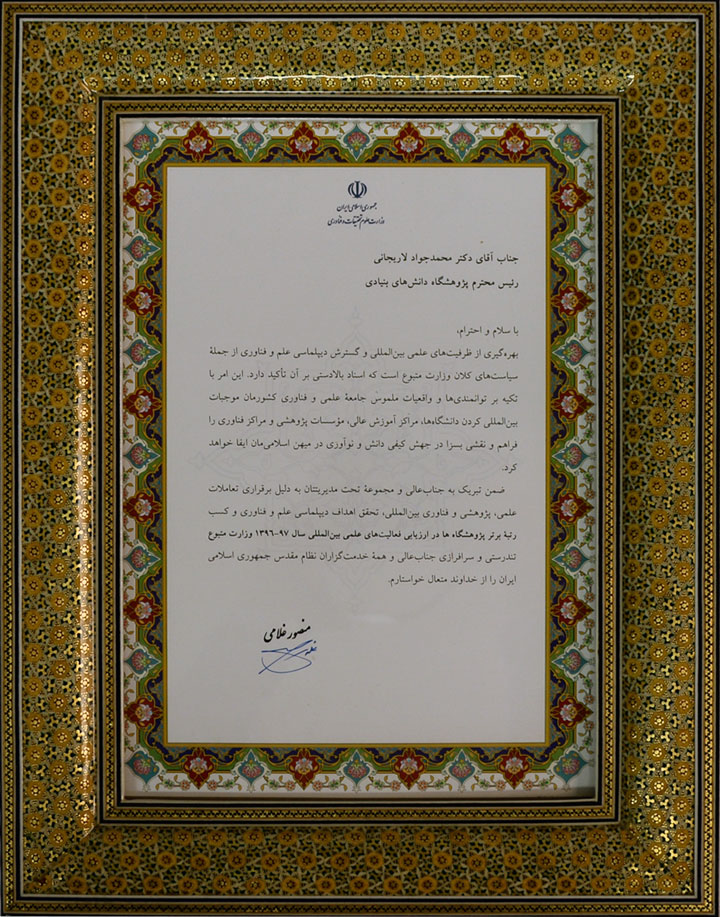 جمهوری اسلامی ایران
وزارت علوم تحقیقات و فناوری
جناب آقای دکتر محمدجواد لاریجانی
رئیس محترم پژوهشگاه دانش‌های بنیادی
با سلام و احترام،
بهره‌گیری از ظرفیت‌های علمی بین‌المللی و گسترش دیپلماسی علم و فناوری از جملهٔ
سیاست‌های کلان وزارت متبوع است که اسناد بالادستی بر آن تأکید دارد. این امر با
تکیه بر توانمندی‌ها و واقعیات ملموس جامعهٔ علمی و فناوری کشورمان موجبات
بین‌المللی کردن دانشگاه‌ها، مراکز آموزش عالی، مؤسسات پژوهشی و مراکز فناوری را
فراهم و نقشی بسزا در جهش کیفی دانش و نوآوری در میهن اسلامی‌مان ایفا خواهد
کرد.
ضمن تبریک به جناب‌عالی و مجموعهٔ تحت مدیریتتان به دلیل برقراری تعاملات
علمی، پژوهشی و فناوری بین‌المللی، تحقق اهداف دیپلماسی علم و فناوری و کسب
رتبهٔ برتر پژوهشگاه ها در ارزیابی فعالیت‌های علمی بین‌المللی سال ۹۷-۱۳۹۶ وزارت متبوع
تندرستی و سرافرازی جناب‌عالی و همهٔ خدمت‌گزاران نظام مقدس جمهوری اسلامی
ایران را از خداوند متعال خواستارم.
منصور غلامی